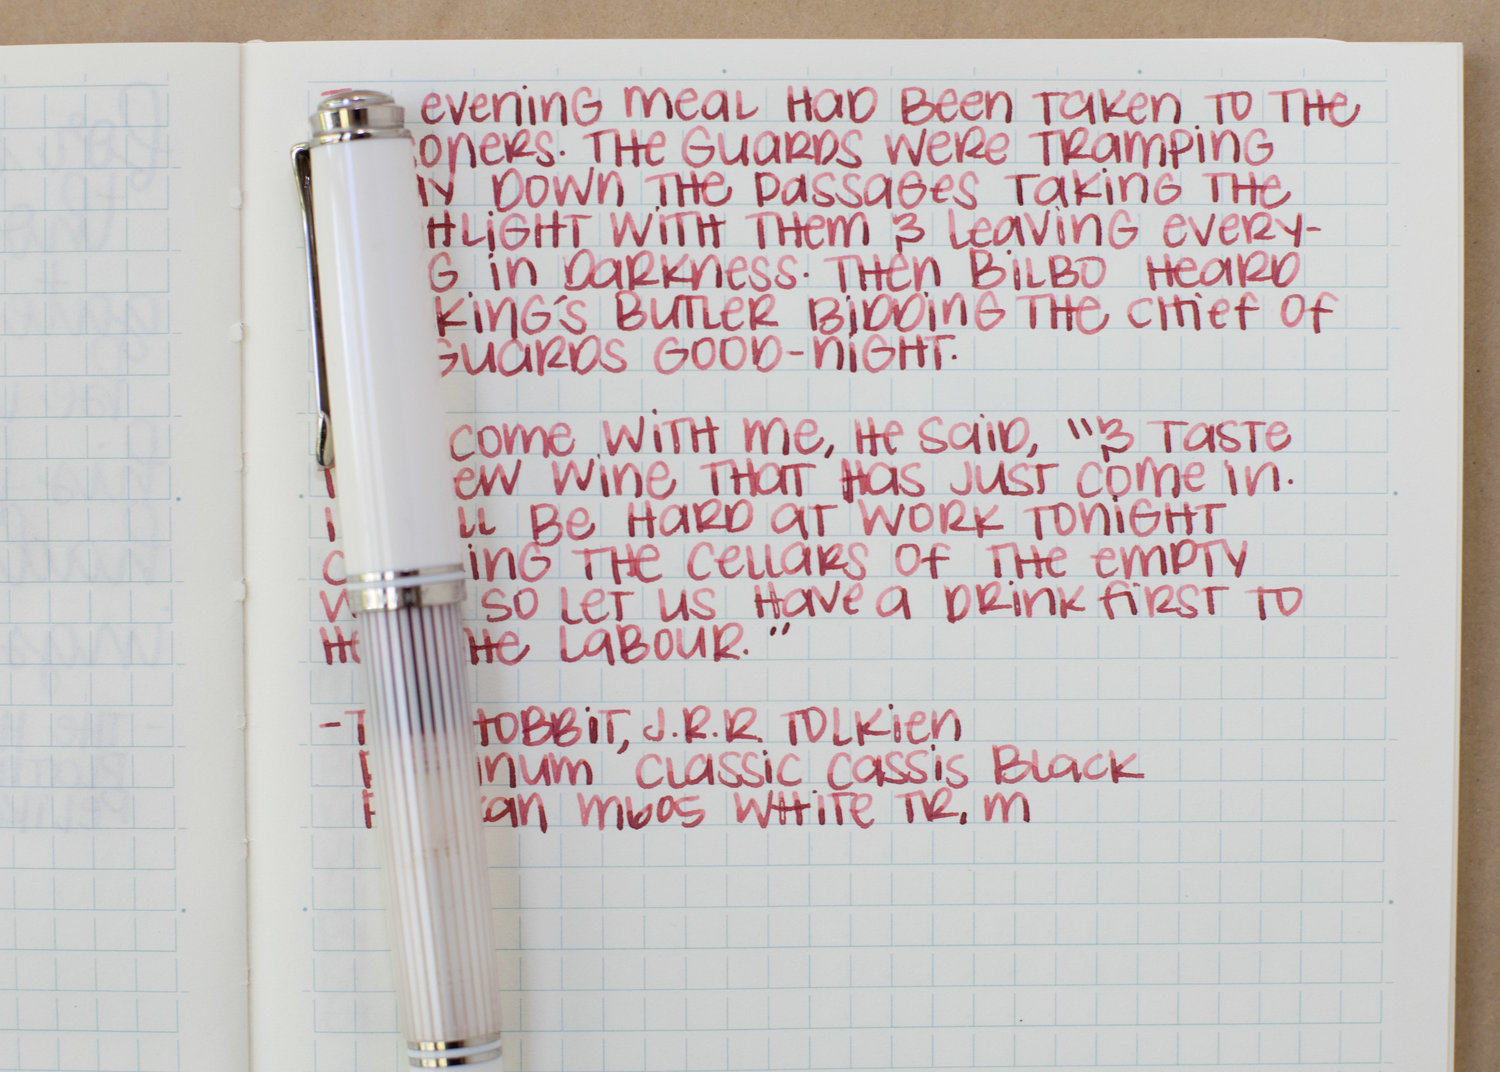 evening meal had been taken to the
oners. The guards were tramping
down the passages taking the
hlight with them & leaving every-
g in darkness. Then Bilbo heard
king's butler bidding the chief of
guards good-night.
come with me, he said, "& taste
ew wine that has just come in.
I ll be hard at work tonight
c ing the cellars of the empty
so let us have a drink first to
he he labour."
-T Hobbit, J.R.R. Tolkien
inum Classic Cassis Black
kan m605 White TR, m